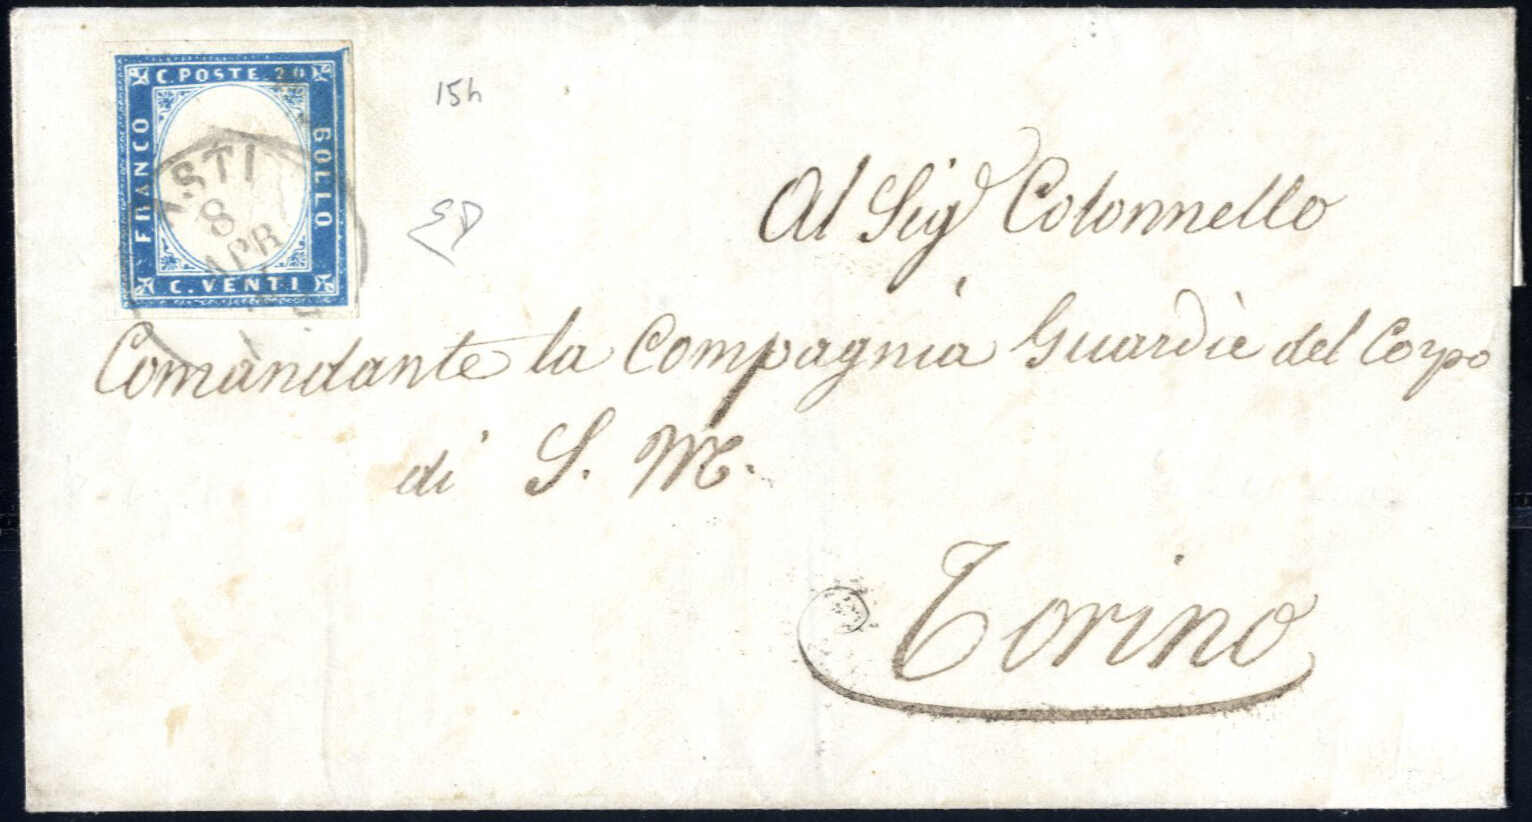 C. POSTE. 20
FRANCO
BOLLO
C. VENTI
ASTI
8
APR
15h
Al Sig.r Colonnello
Comandante la Compagnia Guardie del Corpo
di S. M.
Torino